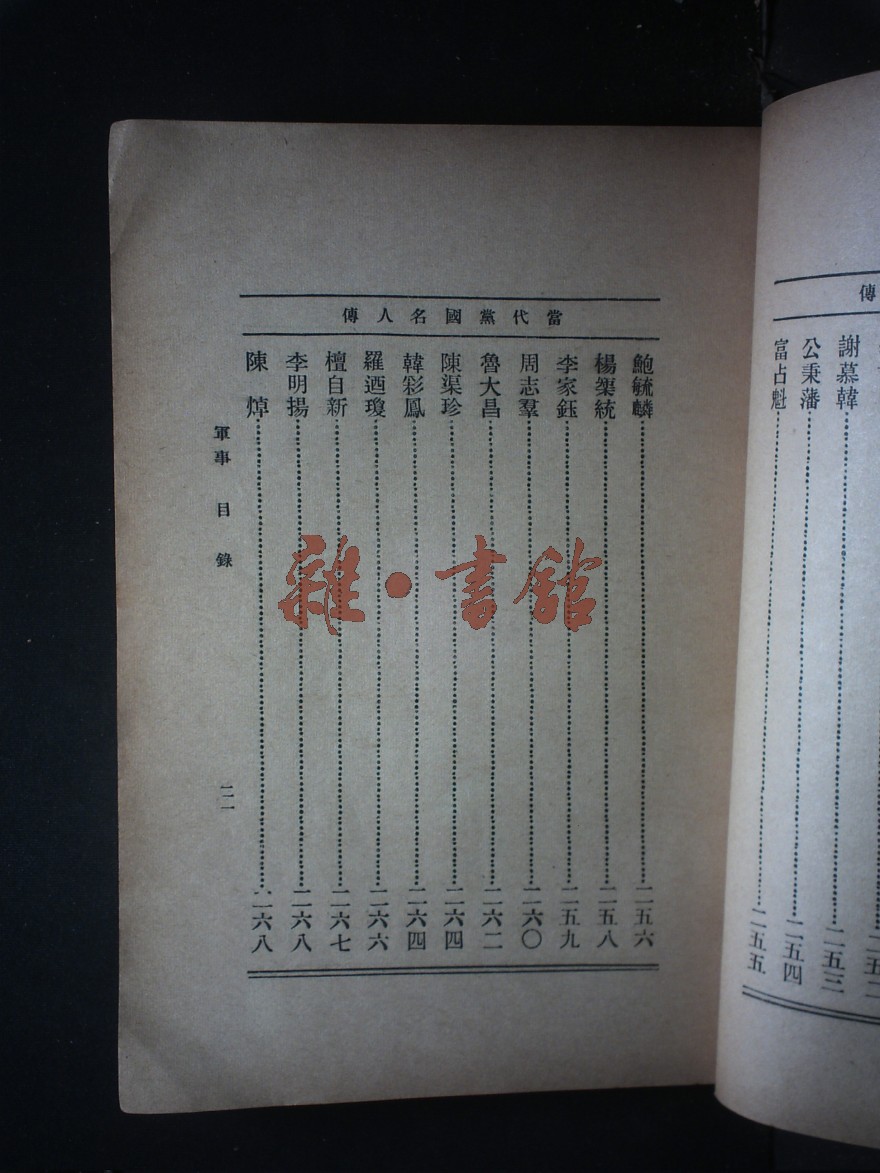 傳
謝慕韓……二五三
公秉藩……二五四
富占魁……二五五
當代黨國名人傳
鮑毓麟……二五六
楊渠統……二五八
李家鈺……二五九
周志羣……二六〇
魯大昌……二六二
陳渠珍……二六四
韓彩鳳……二六四
羅迺瓊……二六六
檀自新……二六七
李明揚……二六八
陳焯……二六八
軍事 目錄 二一
雜·書館